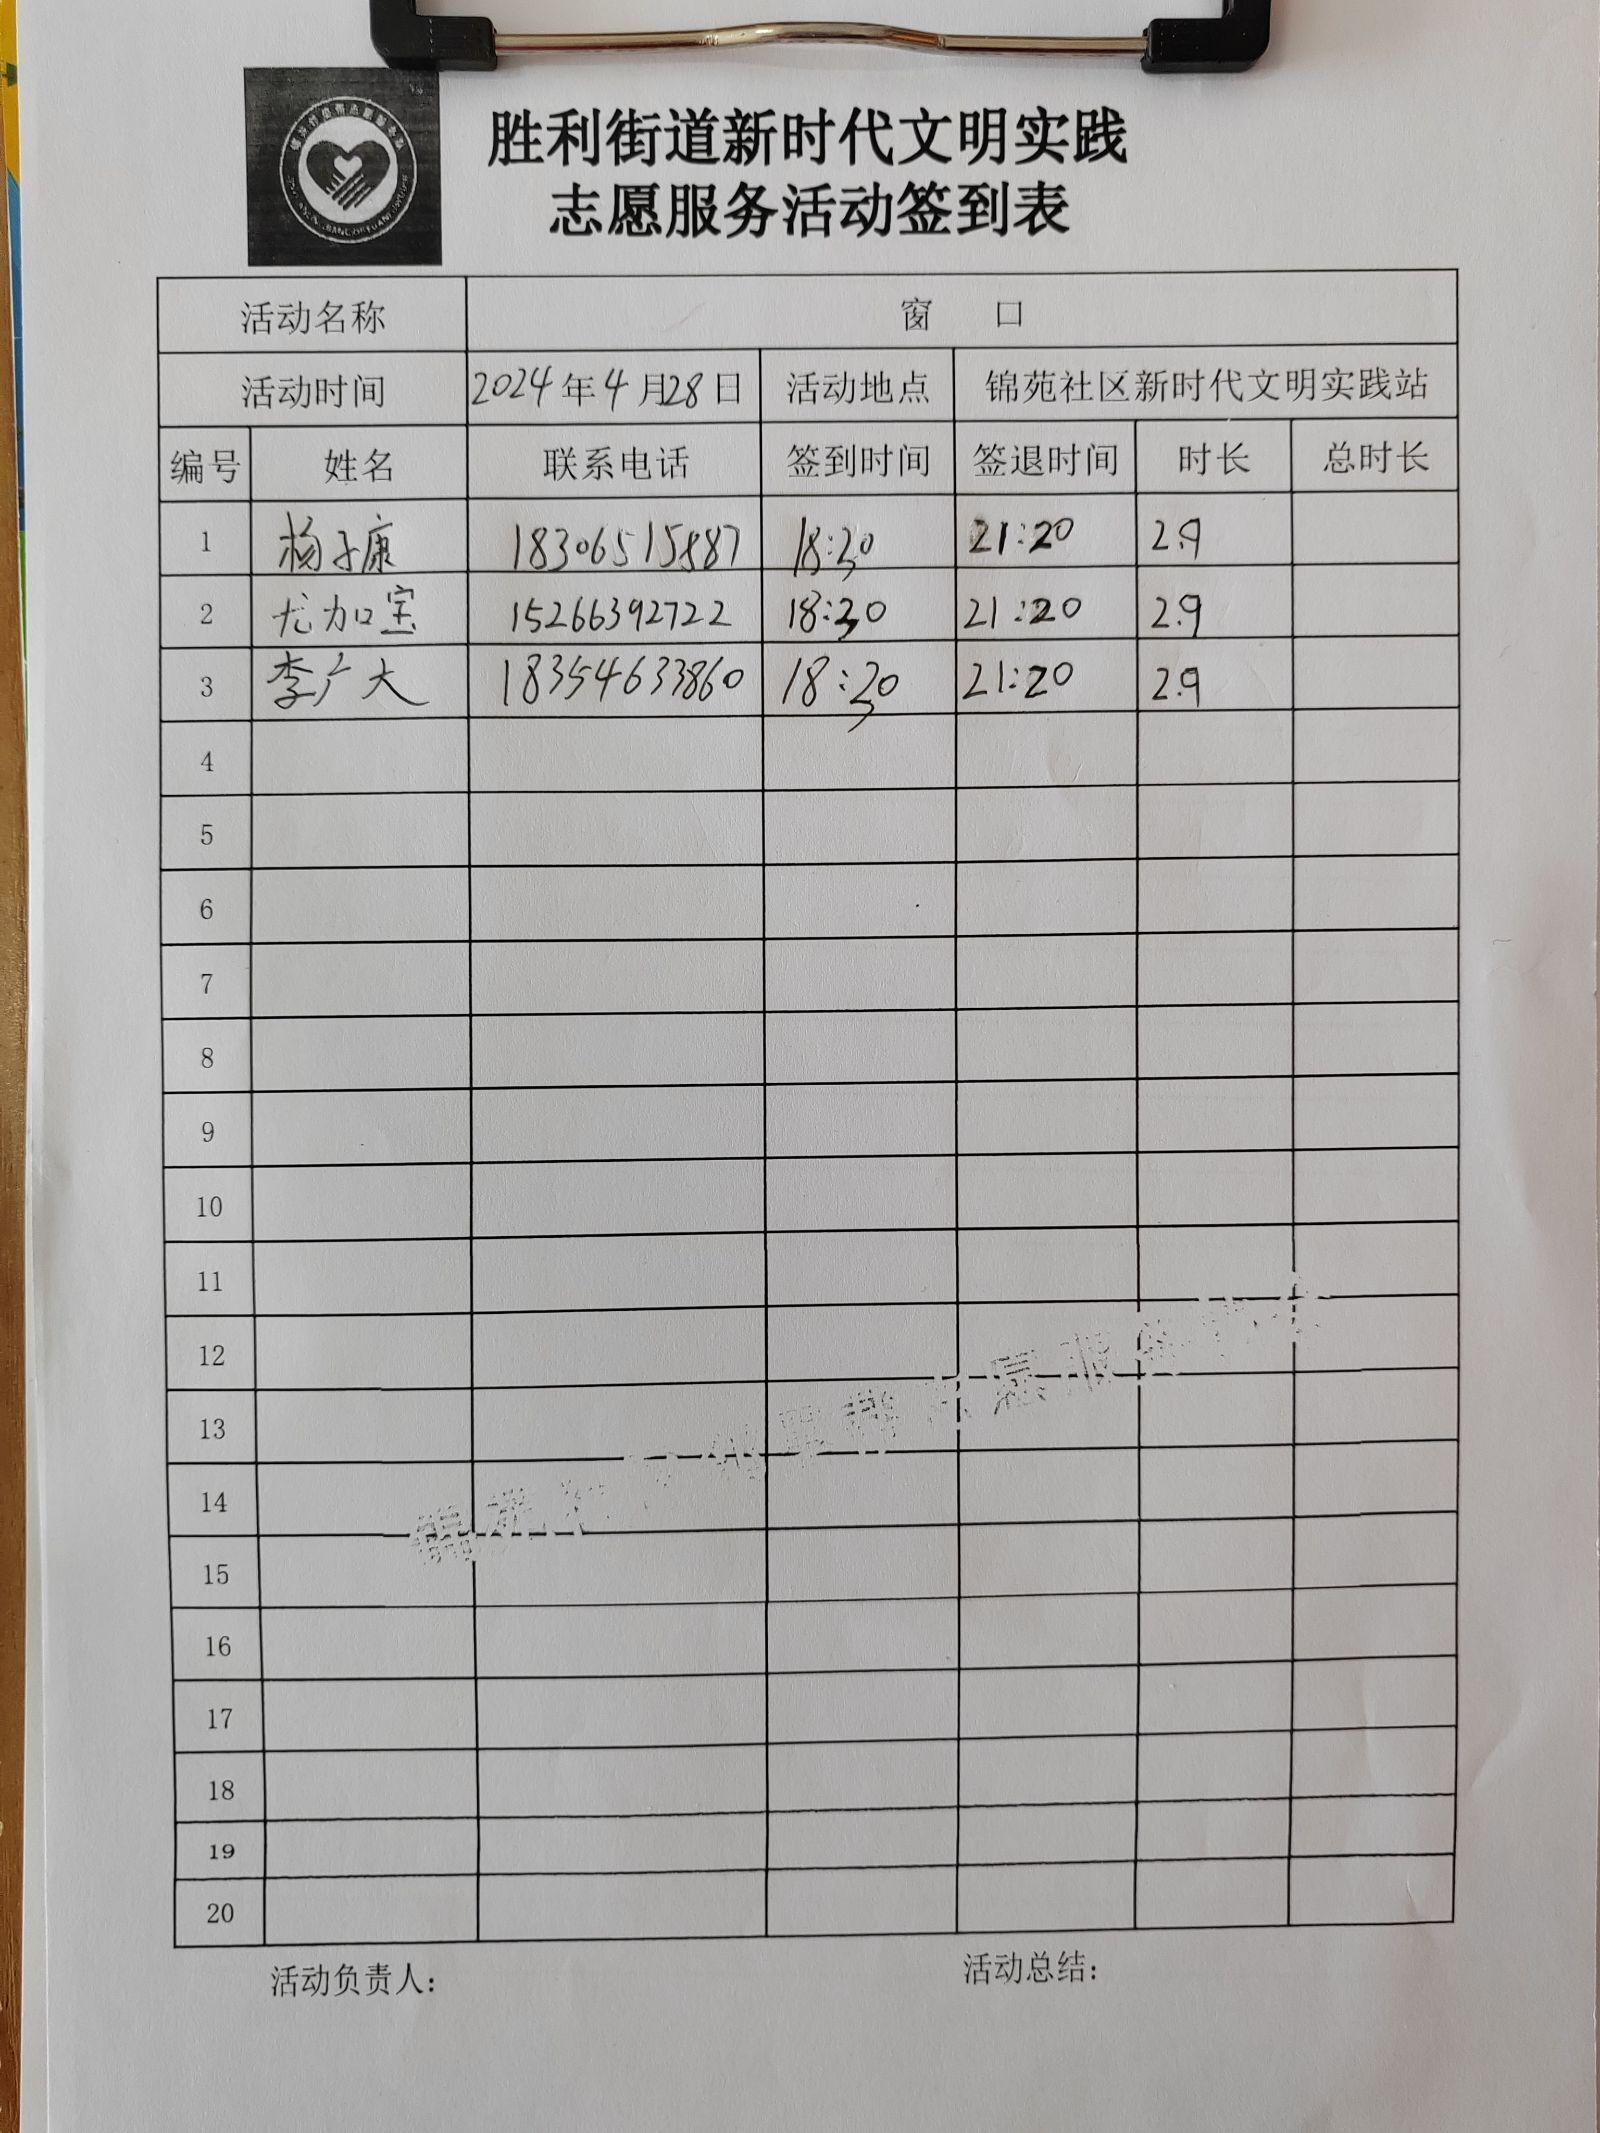 胜利街道新时代文明实践
志愿服务活动签到表
活动名称 窗 口
活动时间 2024年4月28日 活动地点 锦苑社区新时代文明实践站
编号 姓名 联系电话 签到时间 签退时间 时长 总时长
1 杨子康 18306515887 18:30 21:20 2.9
2 尤加宝 15266392722 18:30 21:20 2.9
3 李广大 18354633860 18:30 21:20 2.9
4
5
6
7
8
9
10
11
12
13
14
15
16
17
18
19
20
活动负责人: 活动总结: